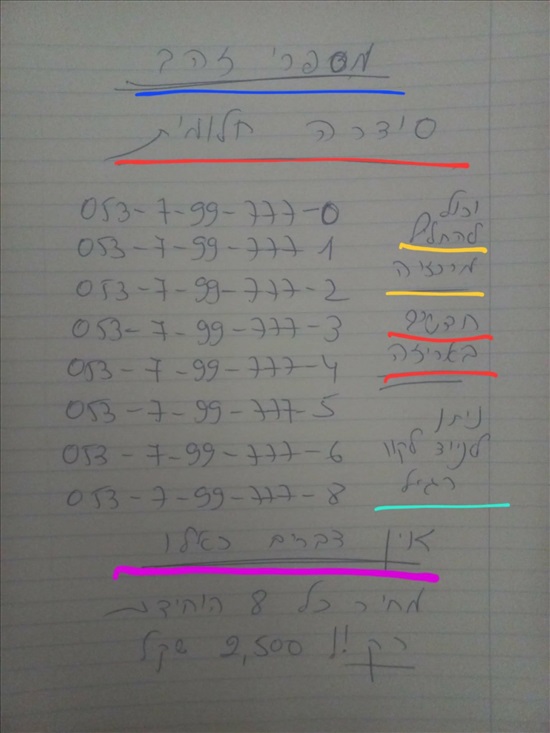 מספרי זהב
סידרה חלומית
053-7-99-777-0
053-7-99-777-1
053-7-99-777-2
053-7-99-777-3
053-7-99-777-4
053-7-99-777-5
053-7-99-777-6
053-7-99-777-8
יכול
להחליף
חדשים
באריזה
ניתן
לנייד לקו
רגיל
אין דברים כאלו
מחיר כל 8 היחידות
רק !! 2,500 שקל